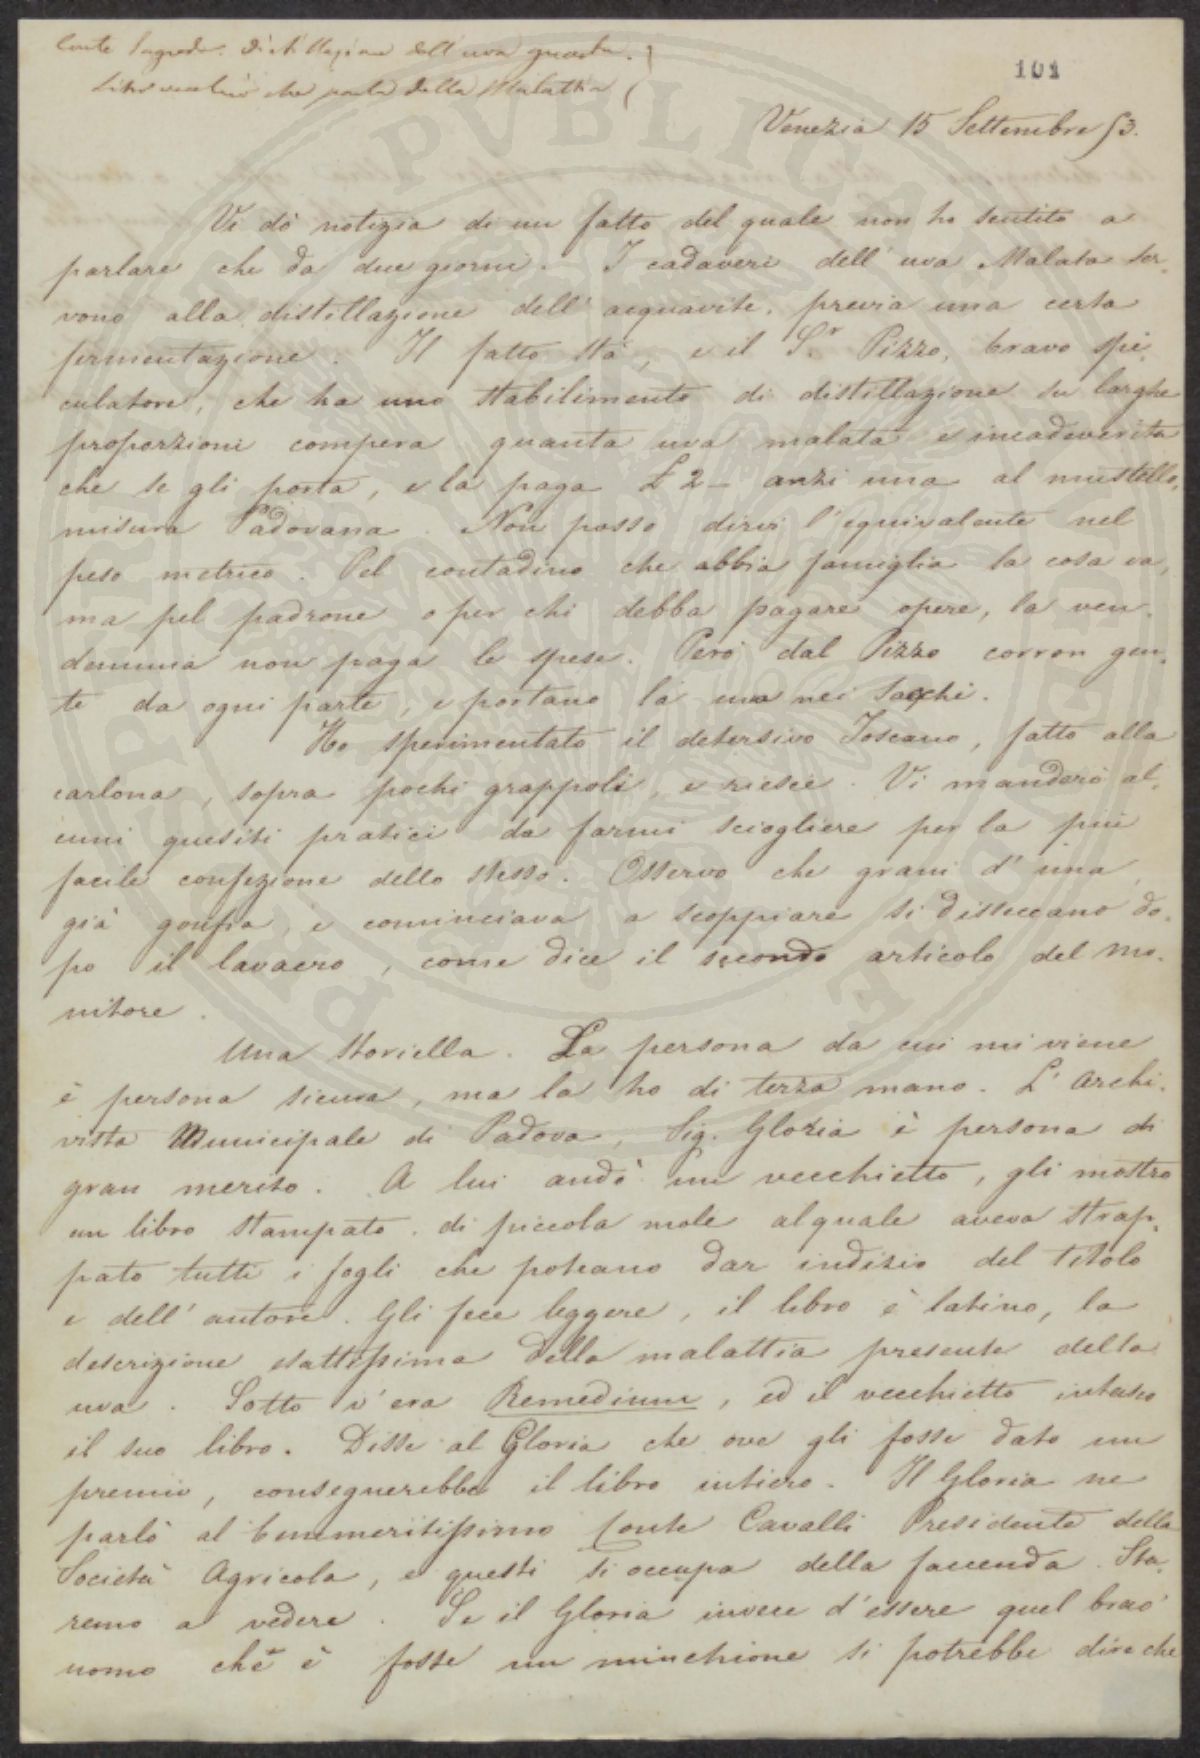 Conte Sagredo. Distillazione dell'uva guasta.
Libro vecchio che parla della Malattia
101
Venezia 15 Settembre 53.
Vi dò notizia di un fatto del quale non ho sentito a
parlare che da due giorni. I cadaveri dell'uva Malata ser-
vono alla distillazione dell'acquavite, previa una certa
fermentazione. Il fatto stà, e il S.r Pizzo, bravo spe-
culatore, che ha uno stabilimento di distillazione su larghe
proporzioni compera quanta uva malata e incadaverita
che se gli porta, e la paga £ 2 – anzi una al mustello,
misura Padovana. Non posso dirvi l'equivalente nel
peso metrico. Pel contadino che abbia famiglia la cosa va,
ma pel padrone o per chi debba pagare opere, la ven-
demmia non paga le spese. Però dal Pizzo corron gen-
te da ogni parte, e portano là uva nei sacchi.
Ho sperimentato il detersivo Toscano, fatto alla
carlona, sopra pochi grappoli, e riesce. Vi manderò al-
cuni quesiti pratici da farmi sciogliere per la più
facile confezione dello stesso. Osservo che grani d'uva
già gonfia, e cominciava a scoppiare si disseccano do-
po il lavacro, come dice il secondo articolo del Mo-
nitore.
Una storiella. La persona da cui mi viene
è persona sicura, ma la ho di terza mano. L'Archi-
vista Municipale di Padova, Sig. Gloria è persona di
gran merito. A lui andò un vecchietto, gli mostrò
un libro stampato di piccola mole al quale aveva strap-
pato tutti i fogli che poteano dar indizio del titolo
e dell'autore. Gli fece leggere, il libro è latino, la
descrizione esattissima della malattia presente della
uva. Sotto v'era Remedium, ed il vecchietto intasco
il suo libro. Disse al Gloria che ove gli fosse dato un
premio, consegnerebbe il libro intiero. Il Gloria ne
parlò al benemeritissimo Conte Cavalli Presidente della
Società Agricola, e questi si occupa della faccenda. Sta-
remo a vedere. Se il Gloria invece d'essere quel brao'
uomo che è fosse un minchione si potrebbe dire che